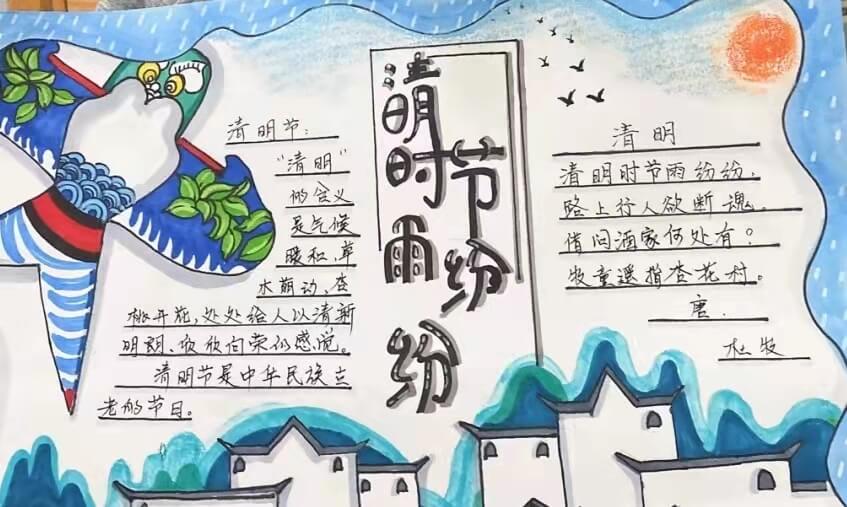 清明节：
"清明"
的含义
是气候
暖和,草
木萌动、杏
桃开花,处处给人以清新
明朗、欣欣向荣的感觉。
清明节是中华民族古
老的节日。
清明时节雨纷纷
清明
清明时节雨纷纷,
路上行人欲断魂。
借问酒家何处有?
牧童遥指杏花村。
唐.
杜牧